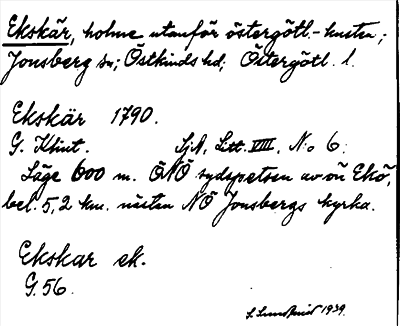 Ekskär, holme utanför östergötl.-kusten;
Jonsberg sn; Östkinds hd; Östergötl. l.
Ekskär 1790.
G. Klint. SjA, Litt. VIII, No 6.
Läge 600 m. ÖNÖ sydspetsen av ön Ekö,
bel. 5,2 km. nästan NÖ Jonsbergs kyrka.
Ekskar ek.
G. 56.
1939.